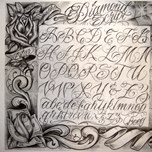 Diamond
A B C D E F G
H I J K L M N
O P Q R S T U
V W X Y Z &
a b c d e f g h i j k l m n o p
q r s t u v w x y z